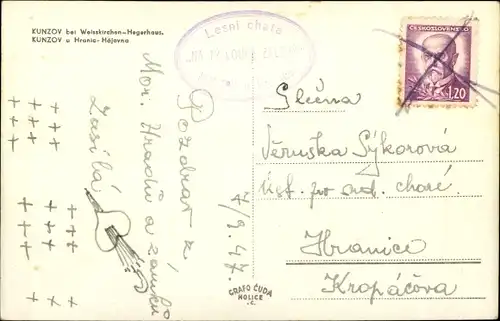 KUNZOV bei Weisskirchen-Hegerhaus.
KUNZOV u Hranic-Hájovna
Lesní chata
ČESKOSLOVENSKO
1.20
Pozdrav z
Mor. Hradu a zámku
Zasílá
7/9.47.
Slečna
Věruška Sýkorová
Úst. pro
choré
Hranice
Kropáčova
GRAFO ČUDA
HOLICE